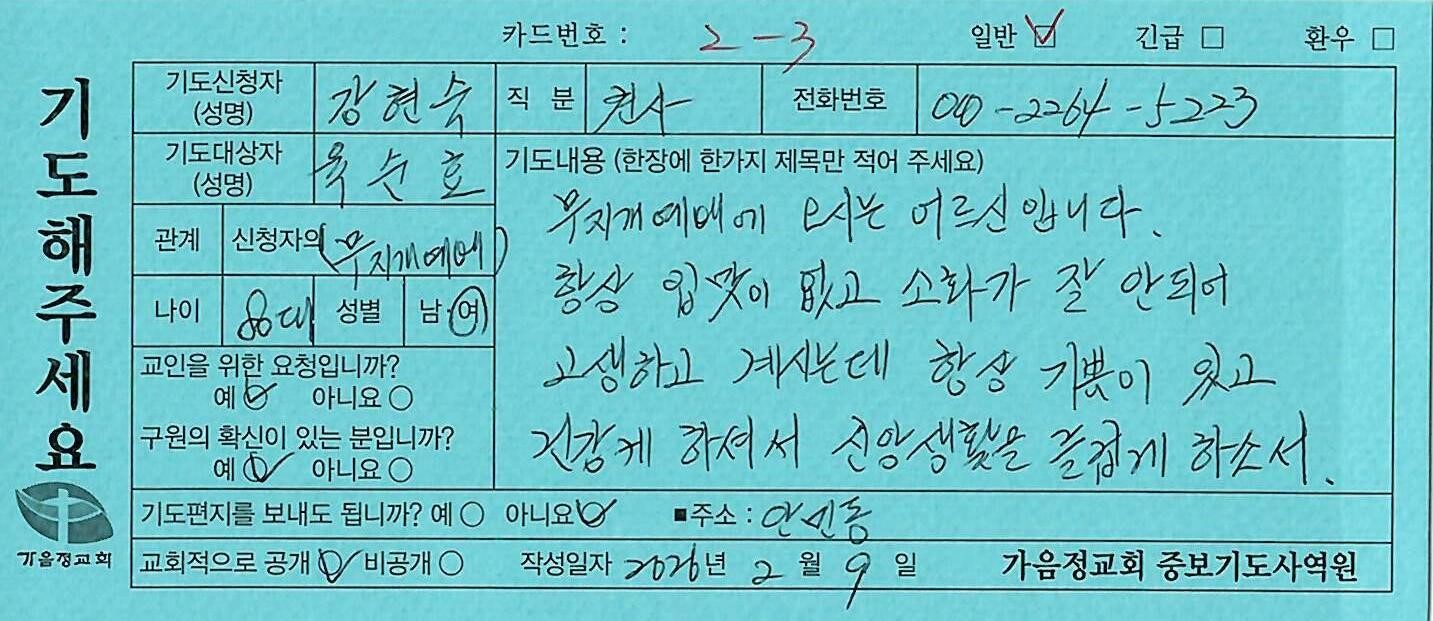 카드번호 : 2-3 일반 ☑ 긴급 □ 환우 □
기도해주세요
기도신청자 (성명) 강현숙 직 분 권사 전화번호 010-2264-5223
기도대상자 (성명) 옥순호
관계 신청자의(무지개예배)
나이 80대 성별 남·여
교인을 위한 요청입니까?
예 ☑ 아니요 ○
구원의 확신이 있는 분입니까?
예 ☑ 아니요 ○
기도내용 (한장에 한가지 제목만 적어 주세요)
무지개예배에 오시는 어르신입니다.
항상 입맛이 없고 소화가 잘 안되어
고생하고 계시는데 항상 기쁨이 있고
건강케 하셔서 신앙생활을 즐겁게 하소서.
기도편지를 보내도 됩니까? 예 ○ 아니요 ☑ ■주소 : 안민동
교회적으로 공개 ☑ 비공개 ○ 작성일자 2026년 2월 9일 가음정교회 중보기도사역원
가음정교회